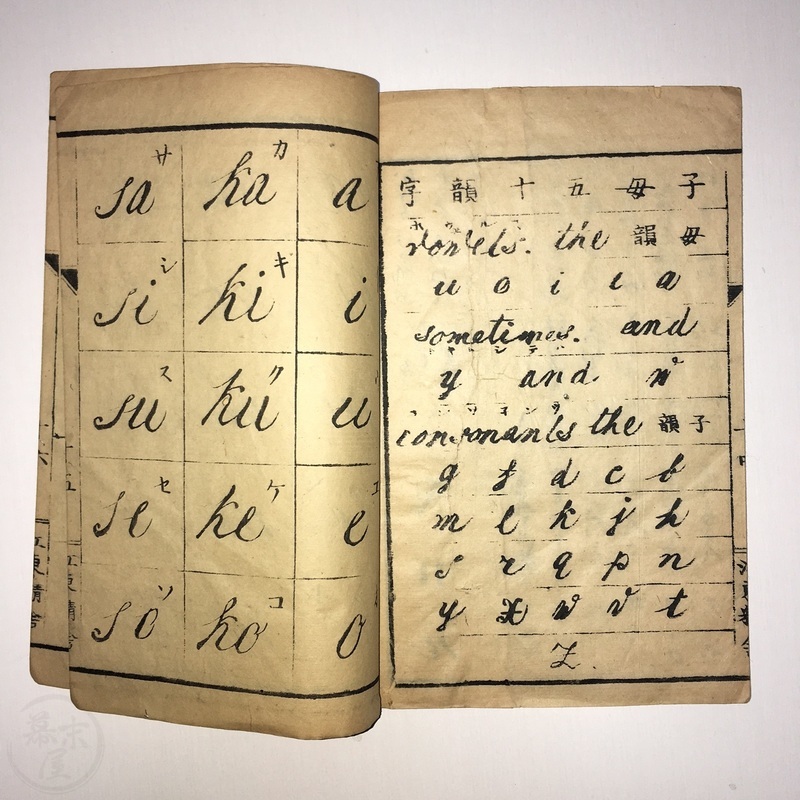 子母五十韻字
母韻 the vowels.
a e i o u
and sometimes.
w and y
子韻 the consonants
b c d f g
h j k l m
n p q r s
t v w x y
z.
a
i
u
e エ
o
ka カ
ki キ
ku ク
ke ケ
ko コ
sa サ
si シ
su ス
se セ
so ソ
幕末屋